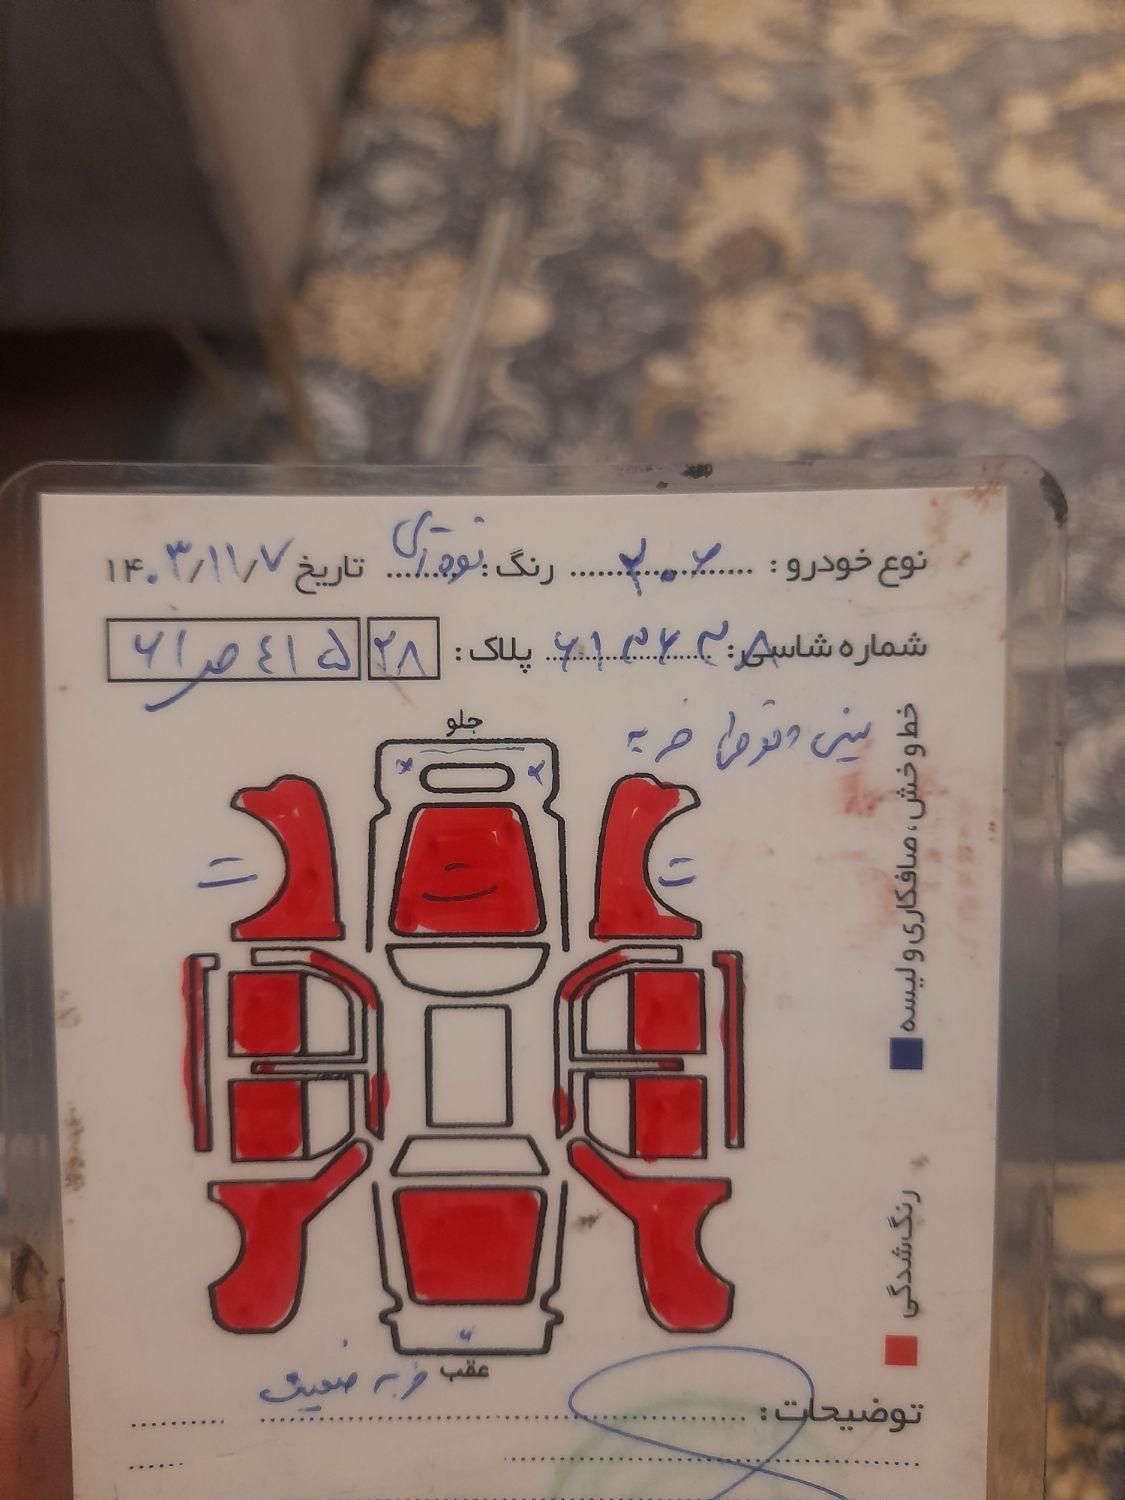 نوع خودرو: ۲۰۶ رنگ: نوک‌مدادی تاریخ ۱۴۰۳/۱۱/۷
شماره شاسی: پلاک: ۲۸ ۴۱۵ ص ۶۱
جلو
سینی و ضربه
ت
ت
ت
خط و خش، صافکاری و لیسه
رنگ‌شدگی
عقب ضربه ضعیف
توضیحات: